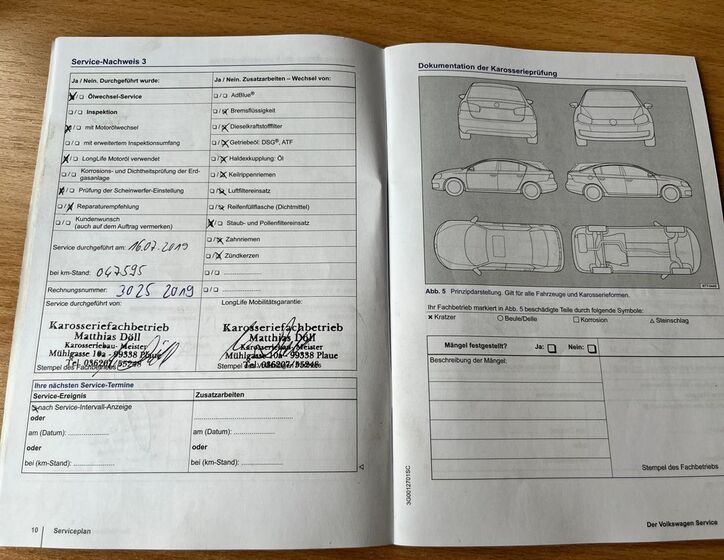 Service-Nachweis 3
Ja / Nein. Durchgeführt wurde:
Ölwechsel-Service
Inspektion
mit Motorölwechsel
mit erweitertem Inspektionsumfang
LongLife Motoröl verwendet
Korrosions- und Dichtheitsprüfung der Erd-
gasanlage
Prüfung der Scheinwerfer-Einstellung
Reparaturempfehlung
Kundenwunsch
(auch auf dem Auftrag vermerken)
Service durchgeführt am: 16.07.2019
bei km-Stand: 047595
Rechnungsnummer: 3025 2019
Service durchgeführt von:
Karosseriefachbetrieb
Matthias Döll
Karosseriebau - Meister
Mühlgasse 10a - 99338 Plaue
Tel. 036207/55248
Stempel des Fachbetriebes
Ja / Nein. Zusatzarbeiten – Wechsel von:
AdBlue®
Bremsflüssigkeit
Dieselkraftstofffilter
Getriebeöl: DSG®, ATF
Haldexkupplung: Öl
Keilrippenriemen
Luftfiltereinsatz
Reifenfüllflasche (Dichtmittel)
Staub- und Pollenfiltereinsatz
Zahnriemen
Zündkerzen
LongLife Mobilitätsgarantie:
Karosseriefachbetrieb
Matthias Döll
Karosseriebau - Meister
Mühlgasse 10a - 99338 Plaue
Tel. 036207/55248
Ihre nächsten Service-Termine
Service-Ereignis
nach Service-Intervall-Anzeige
oder
am (Datum):
oder
bei (km-Stand):
Zusatzarbeiten
am (Datum):
oder
bei (km-Stand):
10 Serviceplan
Dokumentation der Karosserieprüfung
Abb. 5 Prinzipdarstellung. Gilt für alle Fahrzeuge und Karosserieformen.
Ihr Fachbetrieb markiert in Abb. 5 beschädigte Teile durch folgende Symbole:
× Kratzer ○ Beule/Delle □ Korrosion △ Steinschlag
Mängel festgestellt? Ja: Nein:
Beschreibung der Mängel:
Stempel des Fachbetriebs
3G0012701SC
Der Volkswagen Service